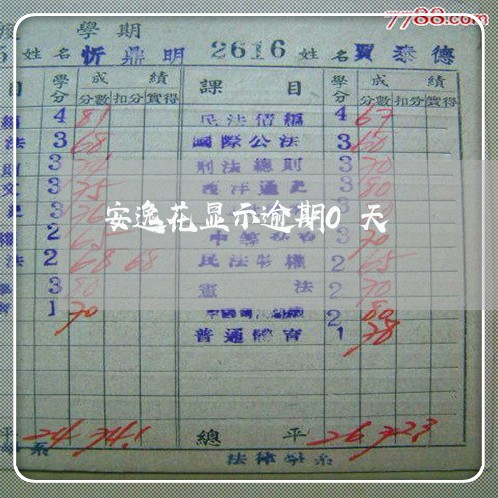 7788.com
學期
姓名 忻鼎明 2616 姓名 賈泰德
目 學分 成績 課目 學分 成績
分數 扣分 實得 分數 扣分 實得
4 81 民法債編 4 67
法 3 68 國際公法 3 60
3 刑法總則 3 70
3 75 西洋通史 3 80
安逸花显示逾期0 天
2 65 3 70
法 2 68 68 民法物權 2 65
3 80 憲法 2 70
1 70 2 80
普通體育 1 78
平 24 74.1 總平 26 72.3
系 法律學系